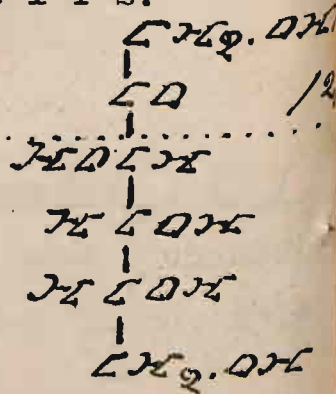 CH2.OH
CO
HOCH
HCOH
HCOH
CH2.OH